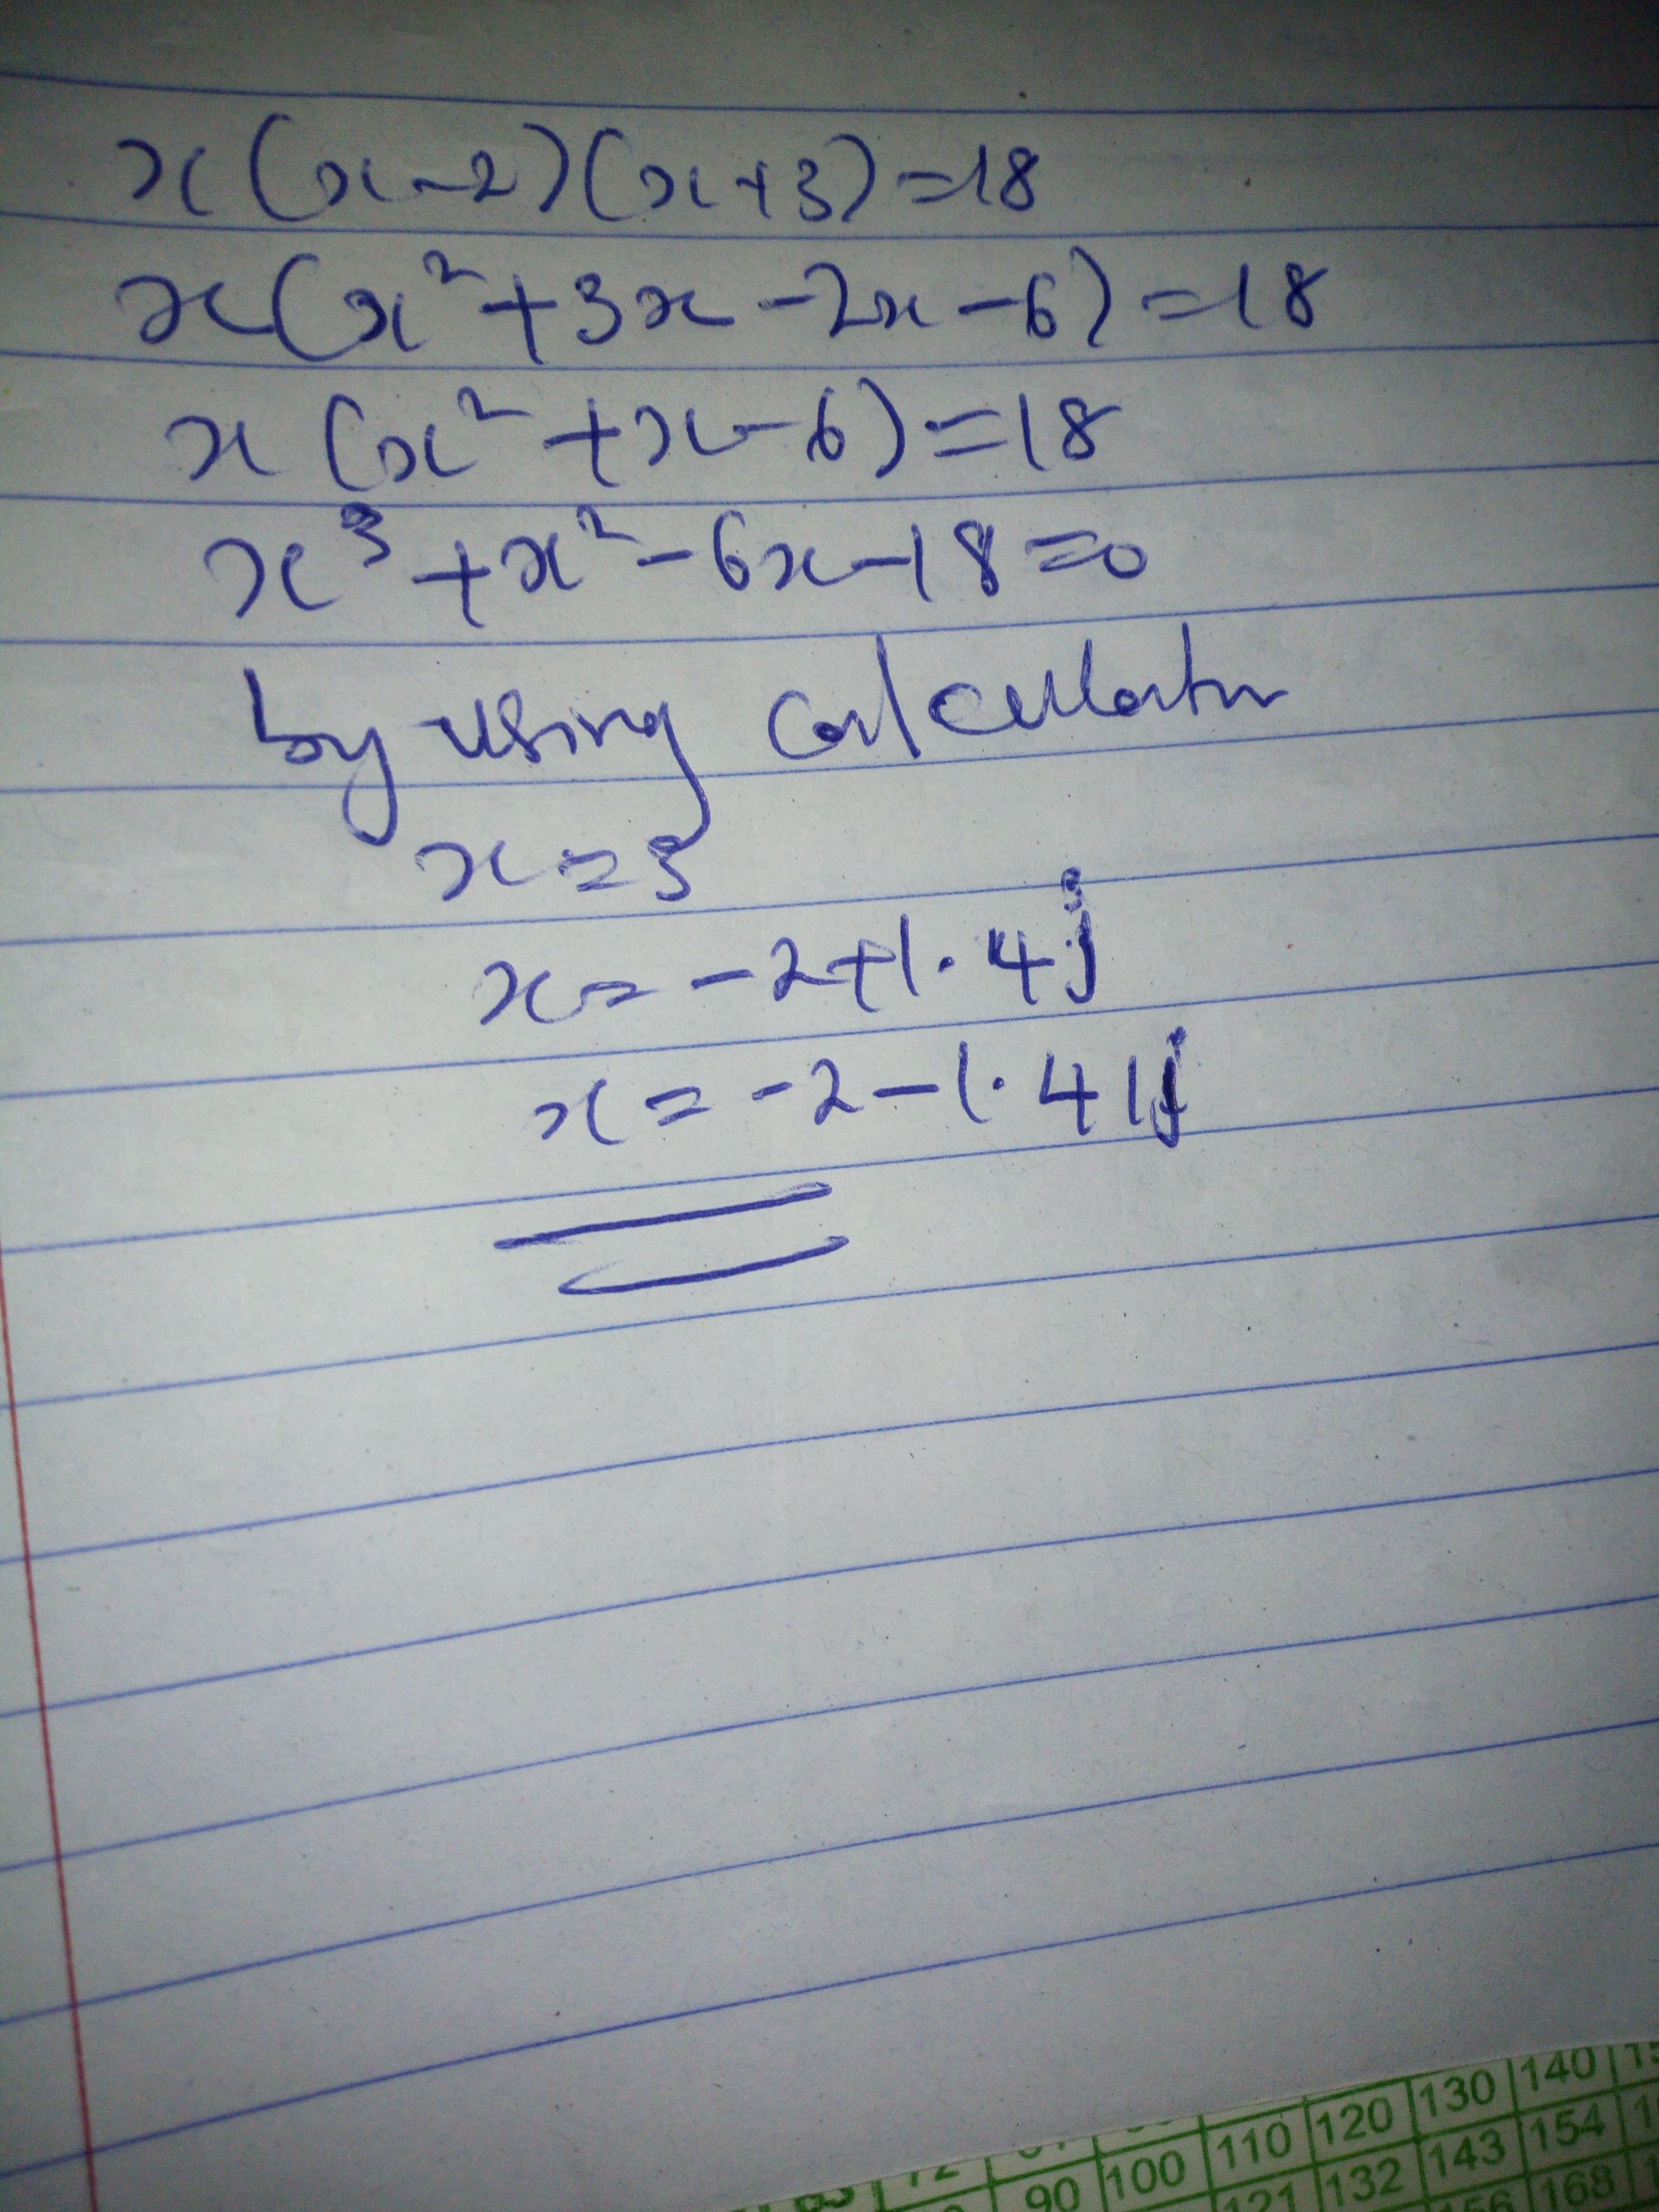 x(x-2)(x+3)=18
x(x²+3x-2x-6)=18
x(x²+x-6)=18
x³+x²-6x-18=0
by using calculator
x=3
x=-2+1.4j
x=-2-1.41j
130 140
110 120 143 154
90 100 132 168
121 156